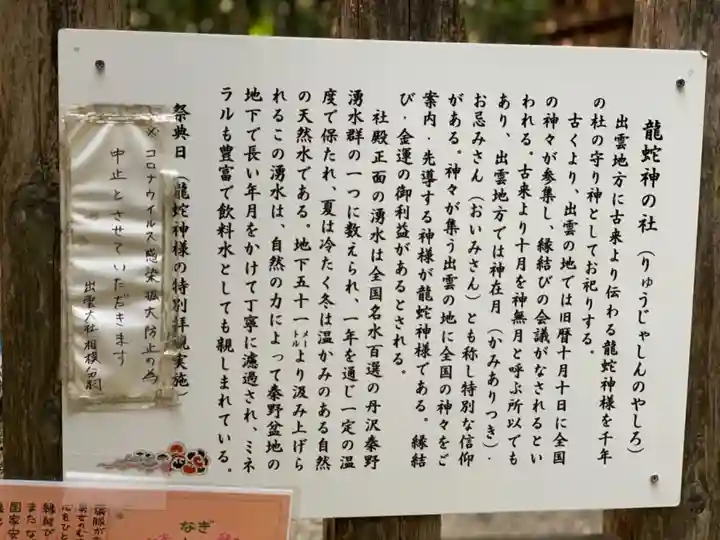 龍蛇神の社（りゅうじゃしんのやしろ）
出雲地方に古来より伝わる龍蛇神様を千年
の杜の守り神としてお祀りする。
古くより、出雲の地では旧暦十月十日に全国
の神々が参集し、縁結びの会議がなされるとい
われる。古来より十月を神無月と呼ぶ所以でも
あり、出雲地方では神在月（かみありつき）・
お忌みさん（おいみさん）とも称し特別な信仰
がある。神々が集う出雲の地に全国の神々をご
案内・先導する神様が龍蛇神様である。縁結
び・金運の御利益があるとされる。
社殿正面の湧水は全国名水百選の丹沢秦野
湧水群の一つに数えられ、一年を通じ一定の温
度で保たれ、夏は冷たく冬は温かみのある自然
の天然水である。地下五十一メートルより汲み上げら
れるこの湧水は、自然の力によって秦野盆地の
地下で長い年月をかけて丁寧に濾過され、ミネ
ラルも豊富で飲料水としても親しまれている。
祭典日（龍蛇神様の特別拝観実施）
※コロナウイルス感染拡大防止の為
中止とさせていただきます
出雲大社相模分祠
なぎ